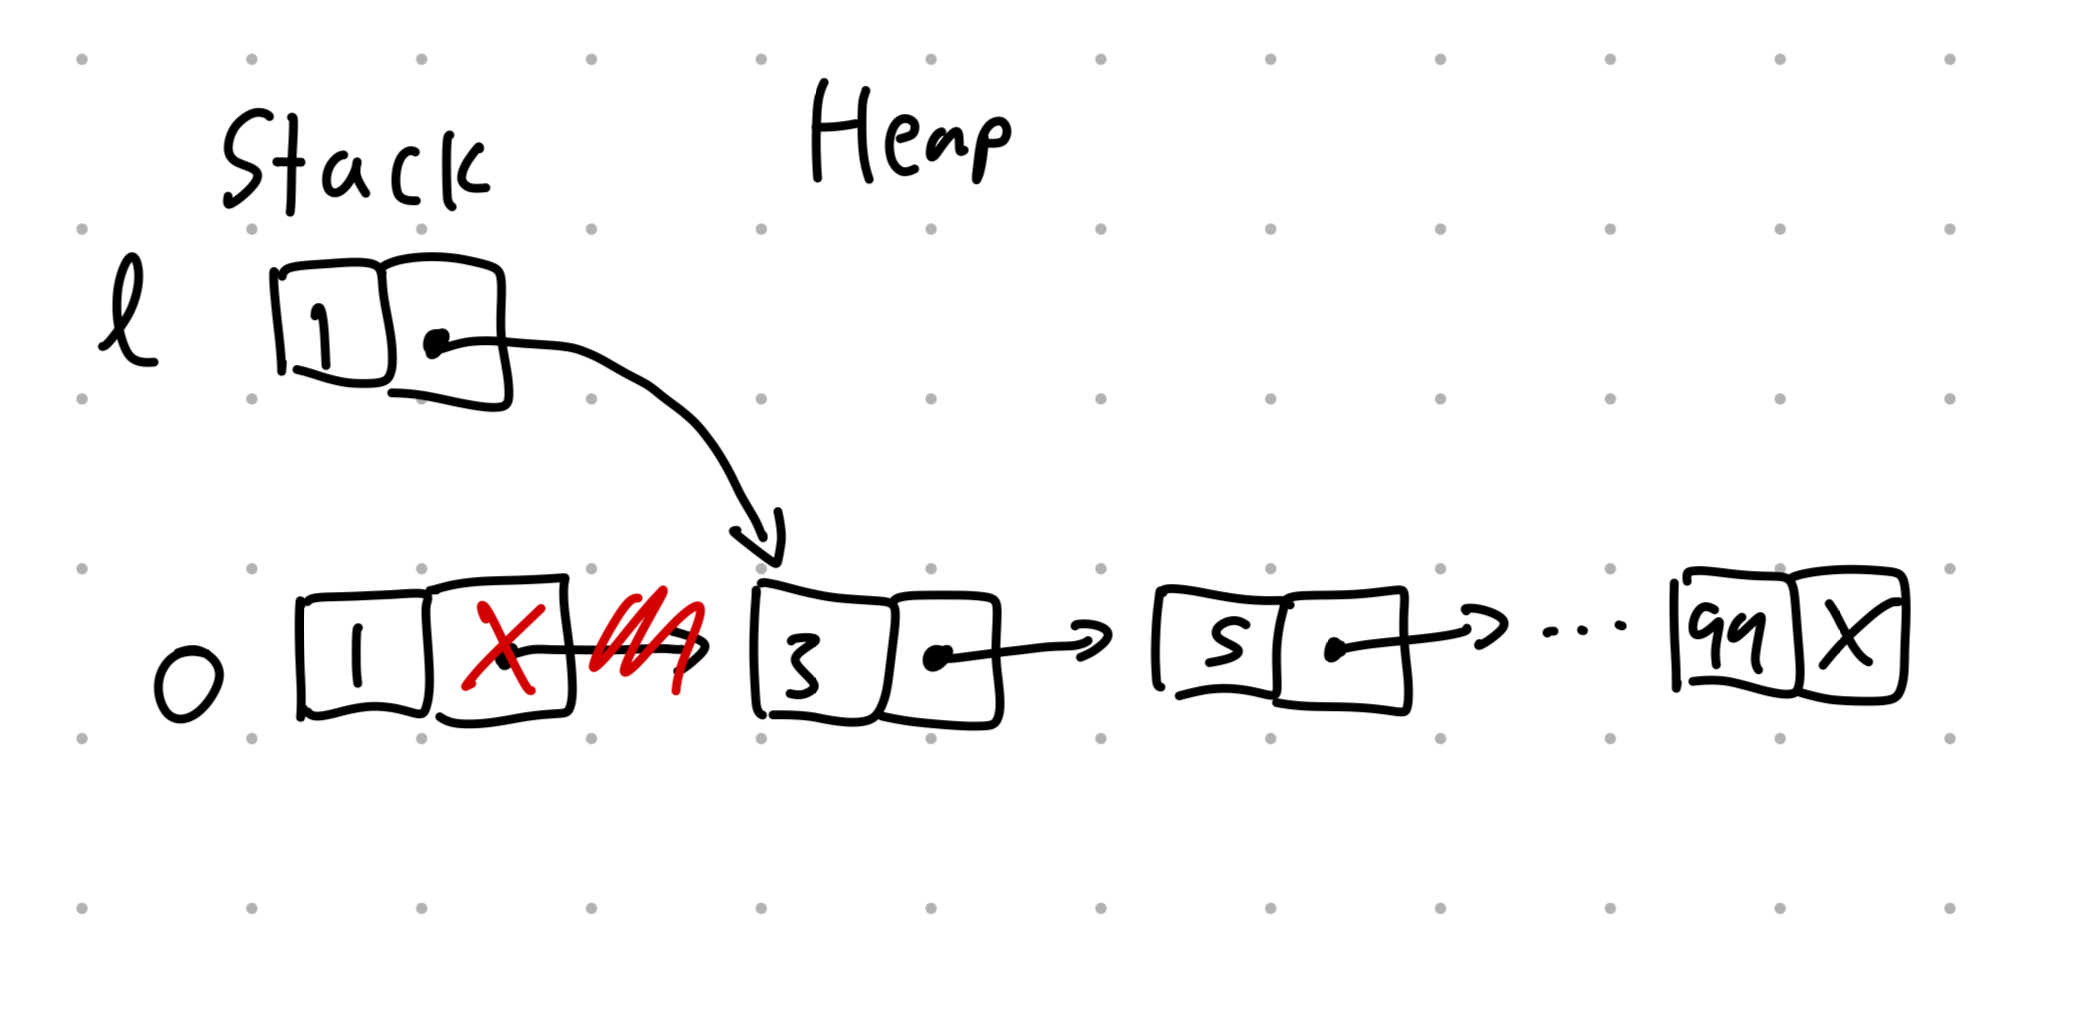 Stack Heap
l 1
O 1 X 3 5 ... 99 X